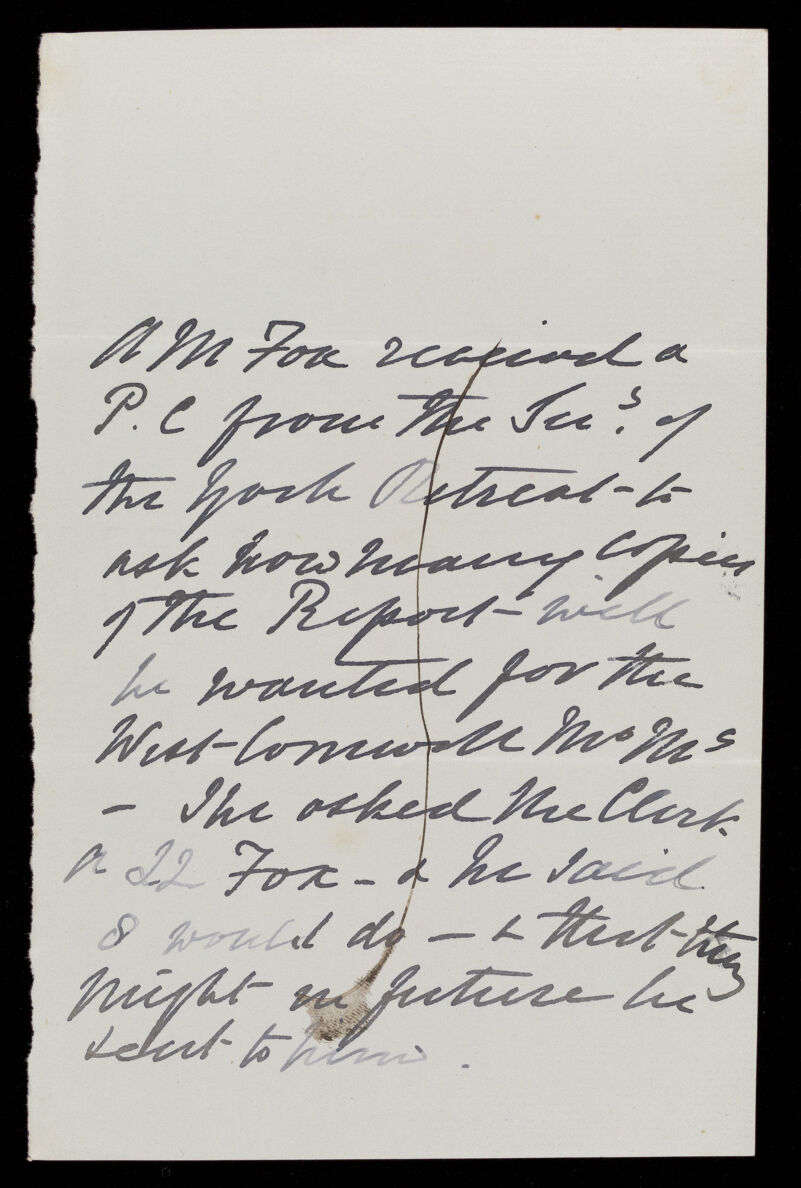 A M Fox received a
P. C from the Sec<sup>s</sup>. of
the York Retreat - to
ask how many copies
of the Report - will
be wanted for the
West - Cornwall Mo Ms
- She asked the Clerk
Fox - & he said
8 would do - & that they
might in future be
sent to him.